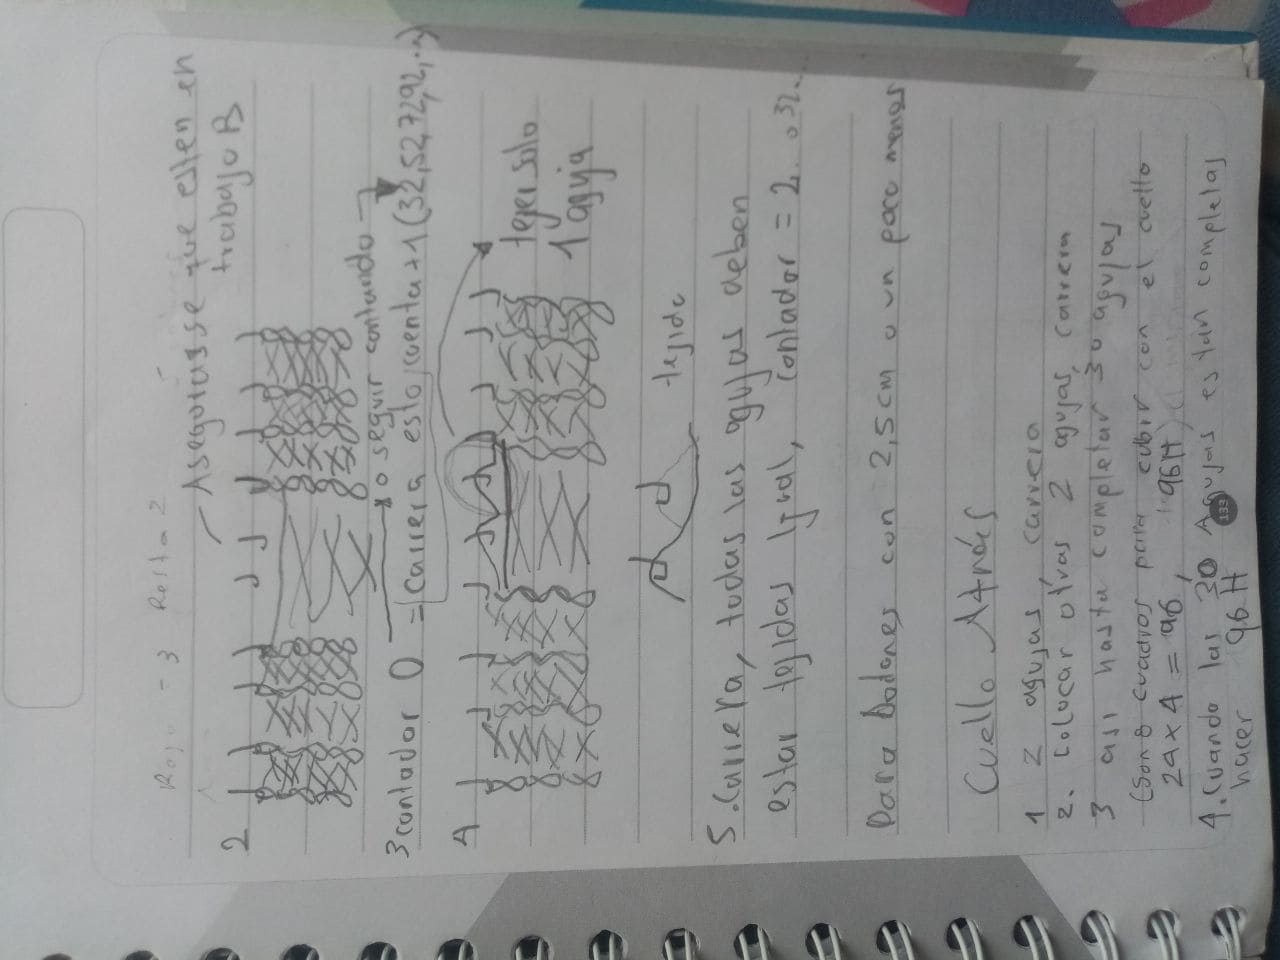 Rojo - 3 Resta 2
Asegurasse que esten en
trabajo B
2
o seguir contando
3 contador 0 = Carrera esto, cuenta+1 (32,52,72,92,...)
4
tejer solo
1 aguja
tejido
5. Carrera, todas las agujas deben
estar tejidas igual, contador = 2. o 32...
Para botones con 2,5 cm o un poco menos
Cuello Atrás
1 2 agujas, carrera
2. colocar otras 2 agujas, carrera
3 asi hasta completar 30 agujas
(son 8 cuadros para cubrir con el cuello
24x4 = 96, 96H)
4. Cuando las 30 Agujas estan completas
hacer 96 H
133